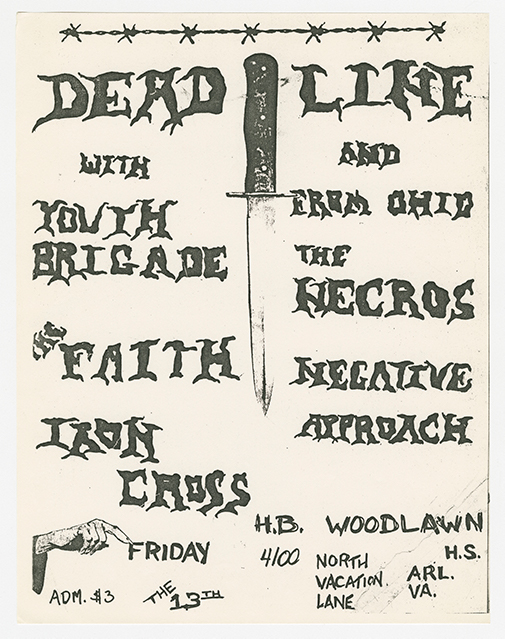 DEAD LINE
WITH
YOUTH
BRIGADE
THE FAITH
IRON
CROSS
AND
FROM OHIO
THE
NECROS
NEGATIVE
APPROACH
FRIDAY
THE 13TH
ADM. $3
H.B. WOODLAWN
H.S.
4100 NORTH
VACATION
LANE
ARL.
VA.